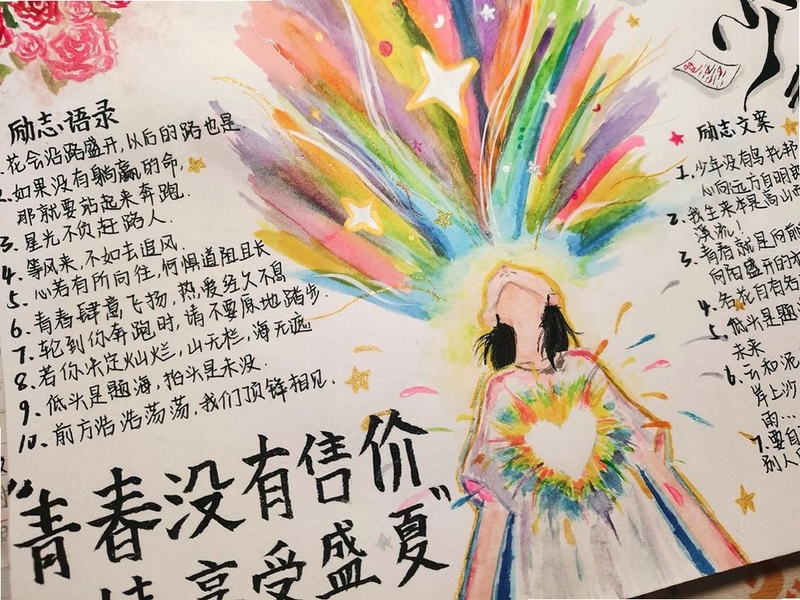 励志语录
1.花会沿路盛开,以后的路也是.
2.如果没有躺赢的命,
那就要站起来奔跑
3.星光不负赶路人.
4.等风来,不如去追风.
5.心若有所向往,何惧道阻且长
6.青春肆意飞扬,热爱经久不息
7.轮到你奔跑时,请不要原地踏步.
8.若你决定灿烂,山无拦,海无遮
9.低头是题海,抬头是未没.
10.前方浩浩荡荡,我们顶锋相见.
"青春没有售价
享受盛夏"
少
励志文案
1.少年没有乌托邦
心向远方自明朗
2.我生来本是高山而
溪流!
3.青春就是向前
向阳盛开的
4.名花自有名
5.低头是题
未来
6.云和泥
岸上沙
雨…
7.要自
别人